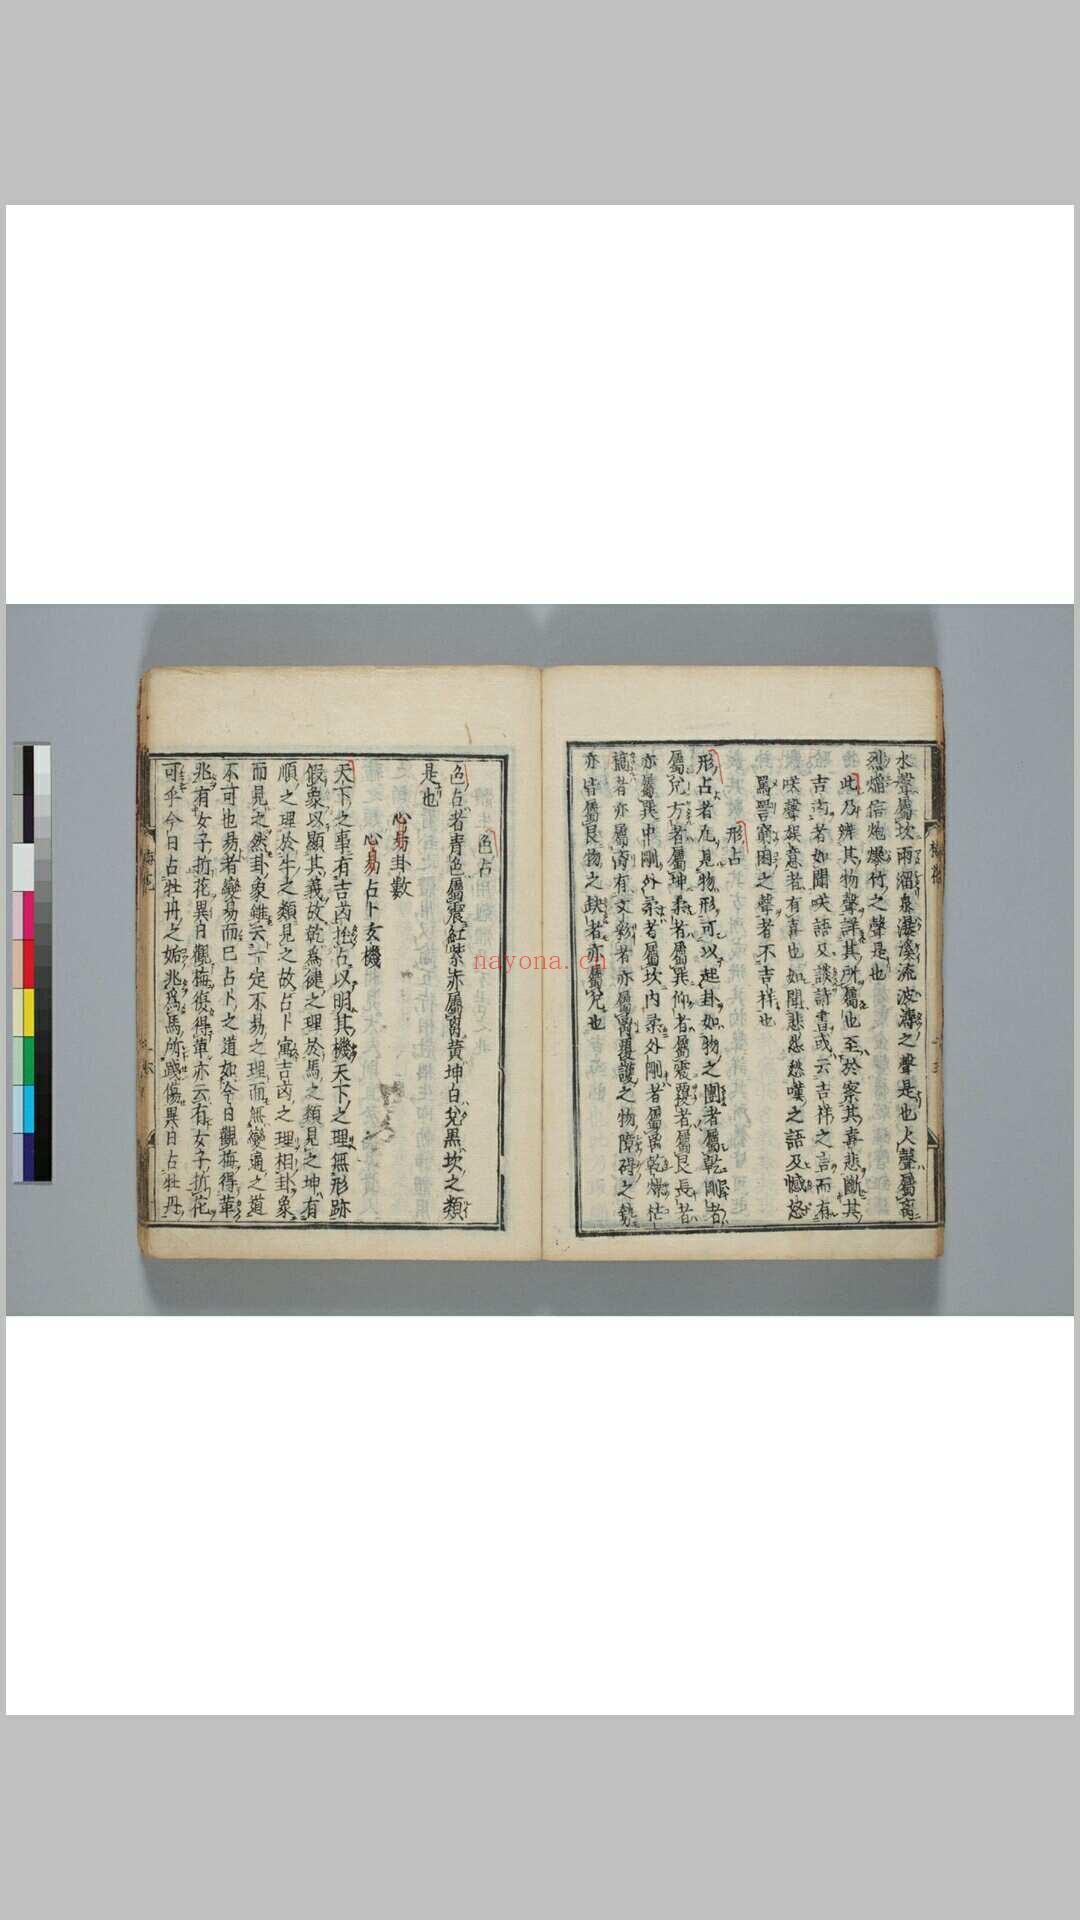 水聲屬坎雨溜泉瀑溪流波濤之聲是也人聲屬离
烈焰信炮爆竹之聲是也
此乃辨其物聲詳其所屬也至於察其喜悲斷其
吉凶者如聞咲語又談詩書或云吉祥之言而有
咲聲娛意者有喜也如聞悲愁愁嘆之語及憾怒
罵詈窮困之聲者不吉祥也
形占
形占者凡見物形可以起卦如物之圓者屬乾剛者
屬兌方者屬坤柔者屬巽仰者屬震覆者屬艮長者
亦屬巽中剛外柔者屬坎内柔外剛者屬离乾燥枯
槁者亦屬离有文彩者亦屬离覆護之物障碍之勢
亦皆屬艮物之缺者亦屬兌也
色占
色占者青色屬震紅紫赤屬离黄坤白兌黒坎之類
是也
心易卦數
心易占卜玄機
天下之事有吉凶托占以明其機天下之理無形跡
假象以顯其義故乾爲健之理於馬之類見之坤有
順之理於牛之類見之故占卜寓吉凶之理相卦象
而見之然卦象雖云一定不易之理而無變通之道
不可也易者變易而已占卜之道如今日觀梅得革
兆有女子折花異日觀梅復得革亦云有女子折花
可乎今日占牡丹之姤兆爲馬所踐傷異日占牡丹
nayona.cn